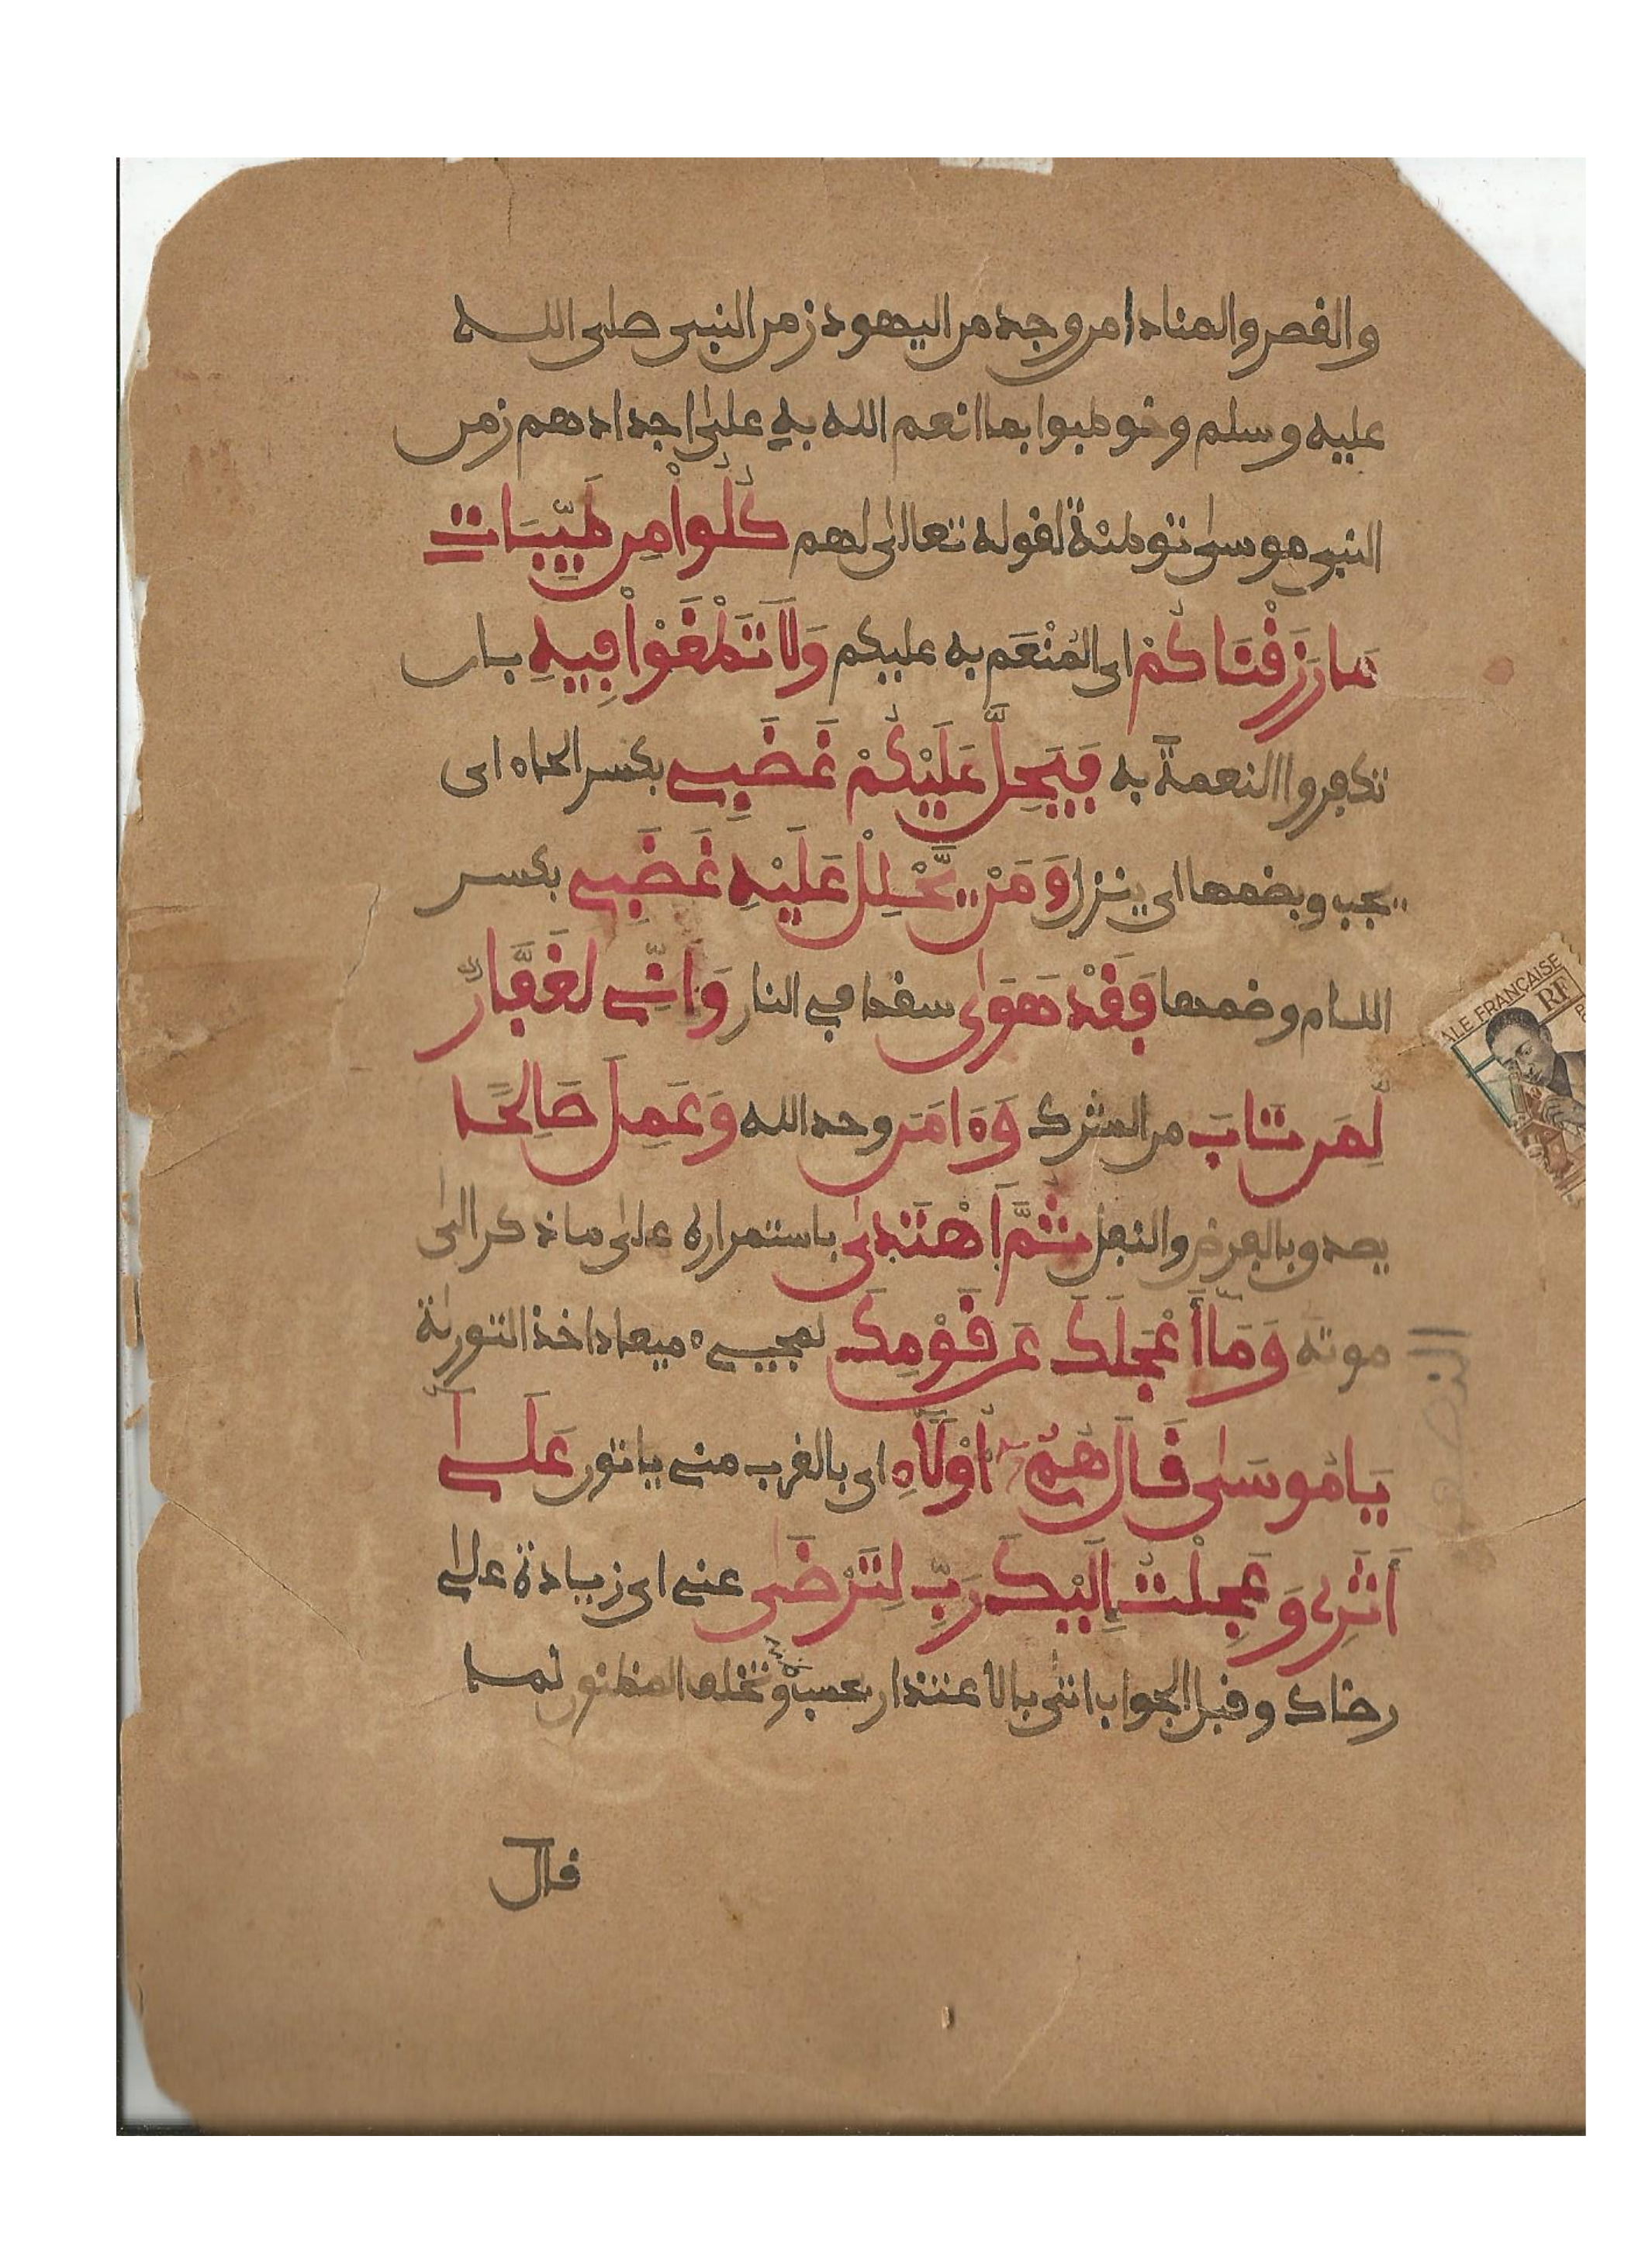 والقصر والمنادا من وجد من اليهود زمن النبى صلى الله
عليه وسلم وخوطبوا بما انعم الله به على اجدادهم زمن
النبى موسى توطئة لقوله تعالى لهم كُلُوا مِن طَيِّبَاتِ
مَا رَزَقْنَاكُمْ اى المُنْعَم به عليكم وَلَا تَطْغَوْا فِيهِ بان
تكفروا النعمة به فَيَحِلَّ عَلَيْكُمْ غَضَبِي بكسر الحاء اى
يجب وبضمها اى ينزل وَمَنْ يَّحْلِلْ عَلَيْهِ غَضَبِي بكسر
اللام وضمها فَقَدْ هَوَىٰ سقط في النار وَإِنِّي لَغَفَّارٌ
لِّمَن تَابَ من الشرك وَءَامَنَ وحد الله وَعَمِلَ صَالِحًا
يصدق بالفرض والنفل ثُمَّ اَهْتَدَىٰ باستمراره على ما ذكر الى
موته وَمَا أَعْجَلَكَ عَن قَوْمِكَ لمجيء ميعاد اخذ التورىة
يَا مُوسَىٰ قَالَ هُمُ أُوْلَاءِ اى بالقرب مني ياتون عَلَىٰ
أَثَرِي وَعَجِلْتُ إِلَيْكَ رَبِّ لِتَرْضَىٰ عني اى زيادة على
رضاك وقبل الجواب اتى بالاعتذار بحسب وتخلف المظنون لما
قال
ALE FRANÇAISE
RF